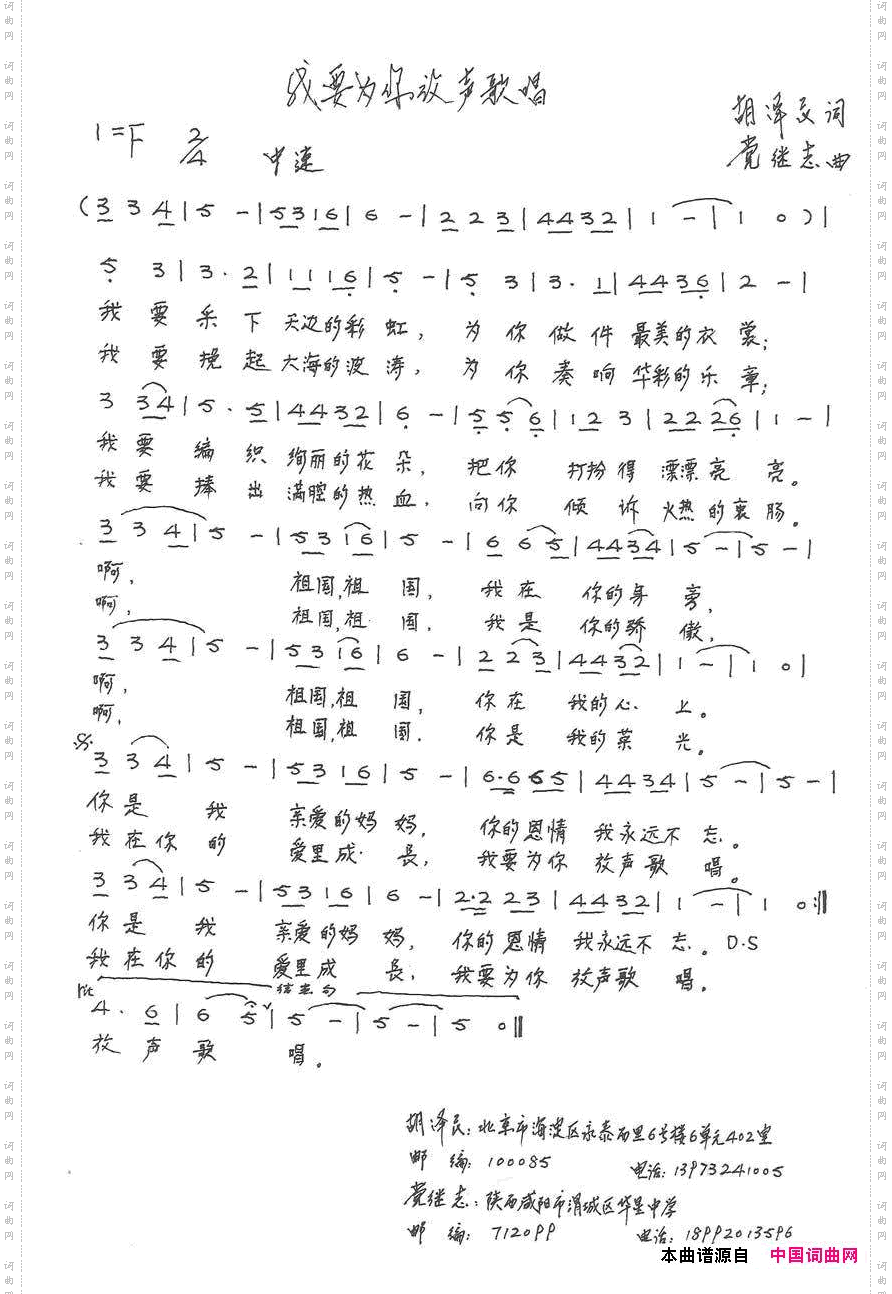 我要为你放声歌唱
1=F 2/4 中速
胡泽民词
党继志曲
(3 3 4|5 -|5316|6 -|2 2 3|4432|1 -|1 0)|
5 3|3. 2|1116|5 -|5 3|3. 1|4436|2 -|
我要采下天边的彩虹，为你做件最美的衣裳；
我要挽起大海的波涛，为你奏响华彩的乐章；
3 34|5. 5|4432|6 -|5 5 6|12 3|22 26|1 -|
我要编织绚丽的花朵，把你打扮得漂漂亮亮。
我要捧出满腔的热血，向你倾诉火热的衷肠。
3 3 4|5 -|53 16|5 -|6 6 5|4434|5 -|5 -|
啊，祖国，祖国，我在你的身旁，
啊，祖国，祖国，我是你的骄傲，
3 3 4|5 -|53 16|6 -|2 2 3|4432|1 -|1 0|
啊，祖国，祖国，你在我的心上。
啊，祖国，祖国，你是我的荣光。
3 3 4|5 -|53 16|5 -|6·6 65|4434|5 -|5 -|
你是我亲爱的妈妈，你的恩情我永远不忘。
我在你的爱里成长，我要为你放声歌唱。
3 3 4|5 -|53 16|6 -|2·2 23|4432|1 -|1 0:||
你是我亲爱的妈妈，你的恩情我永远不忘。D·S
我在你的爱里成长，我要为你放声歌唱。
rit 结束句
4. 6|6 5|5 -|5 -|5 0||
放声歌唱。
胡泽民：北京市海淀区永泰西里6号楼6单元402室
邮编：100085 电话：13973241005
党继志：陕西咸阳市渭城区华星中学
邮编：712099 电话：18992013596
本曲谱源自 中国词曲网